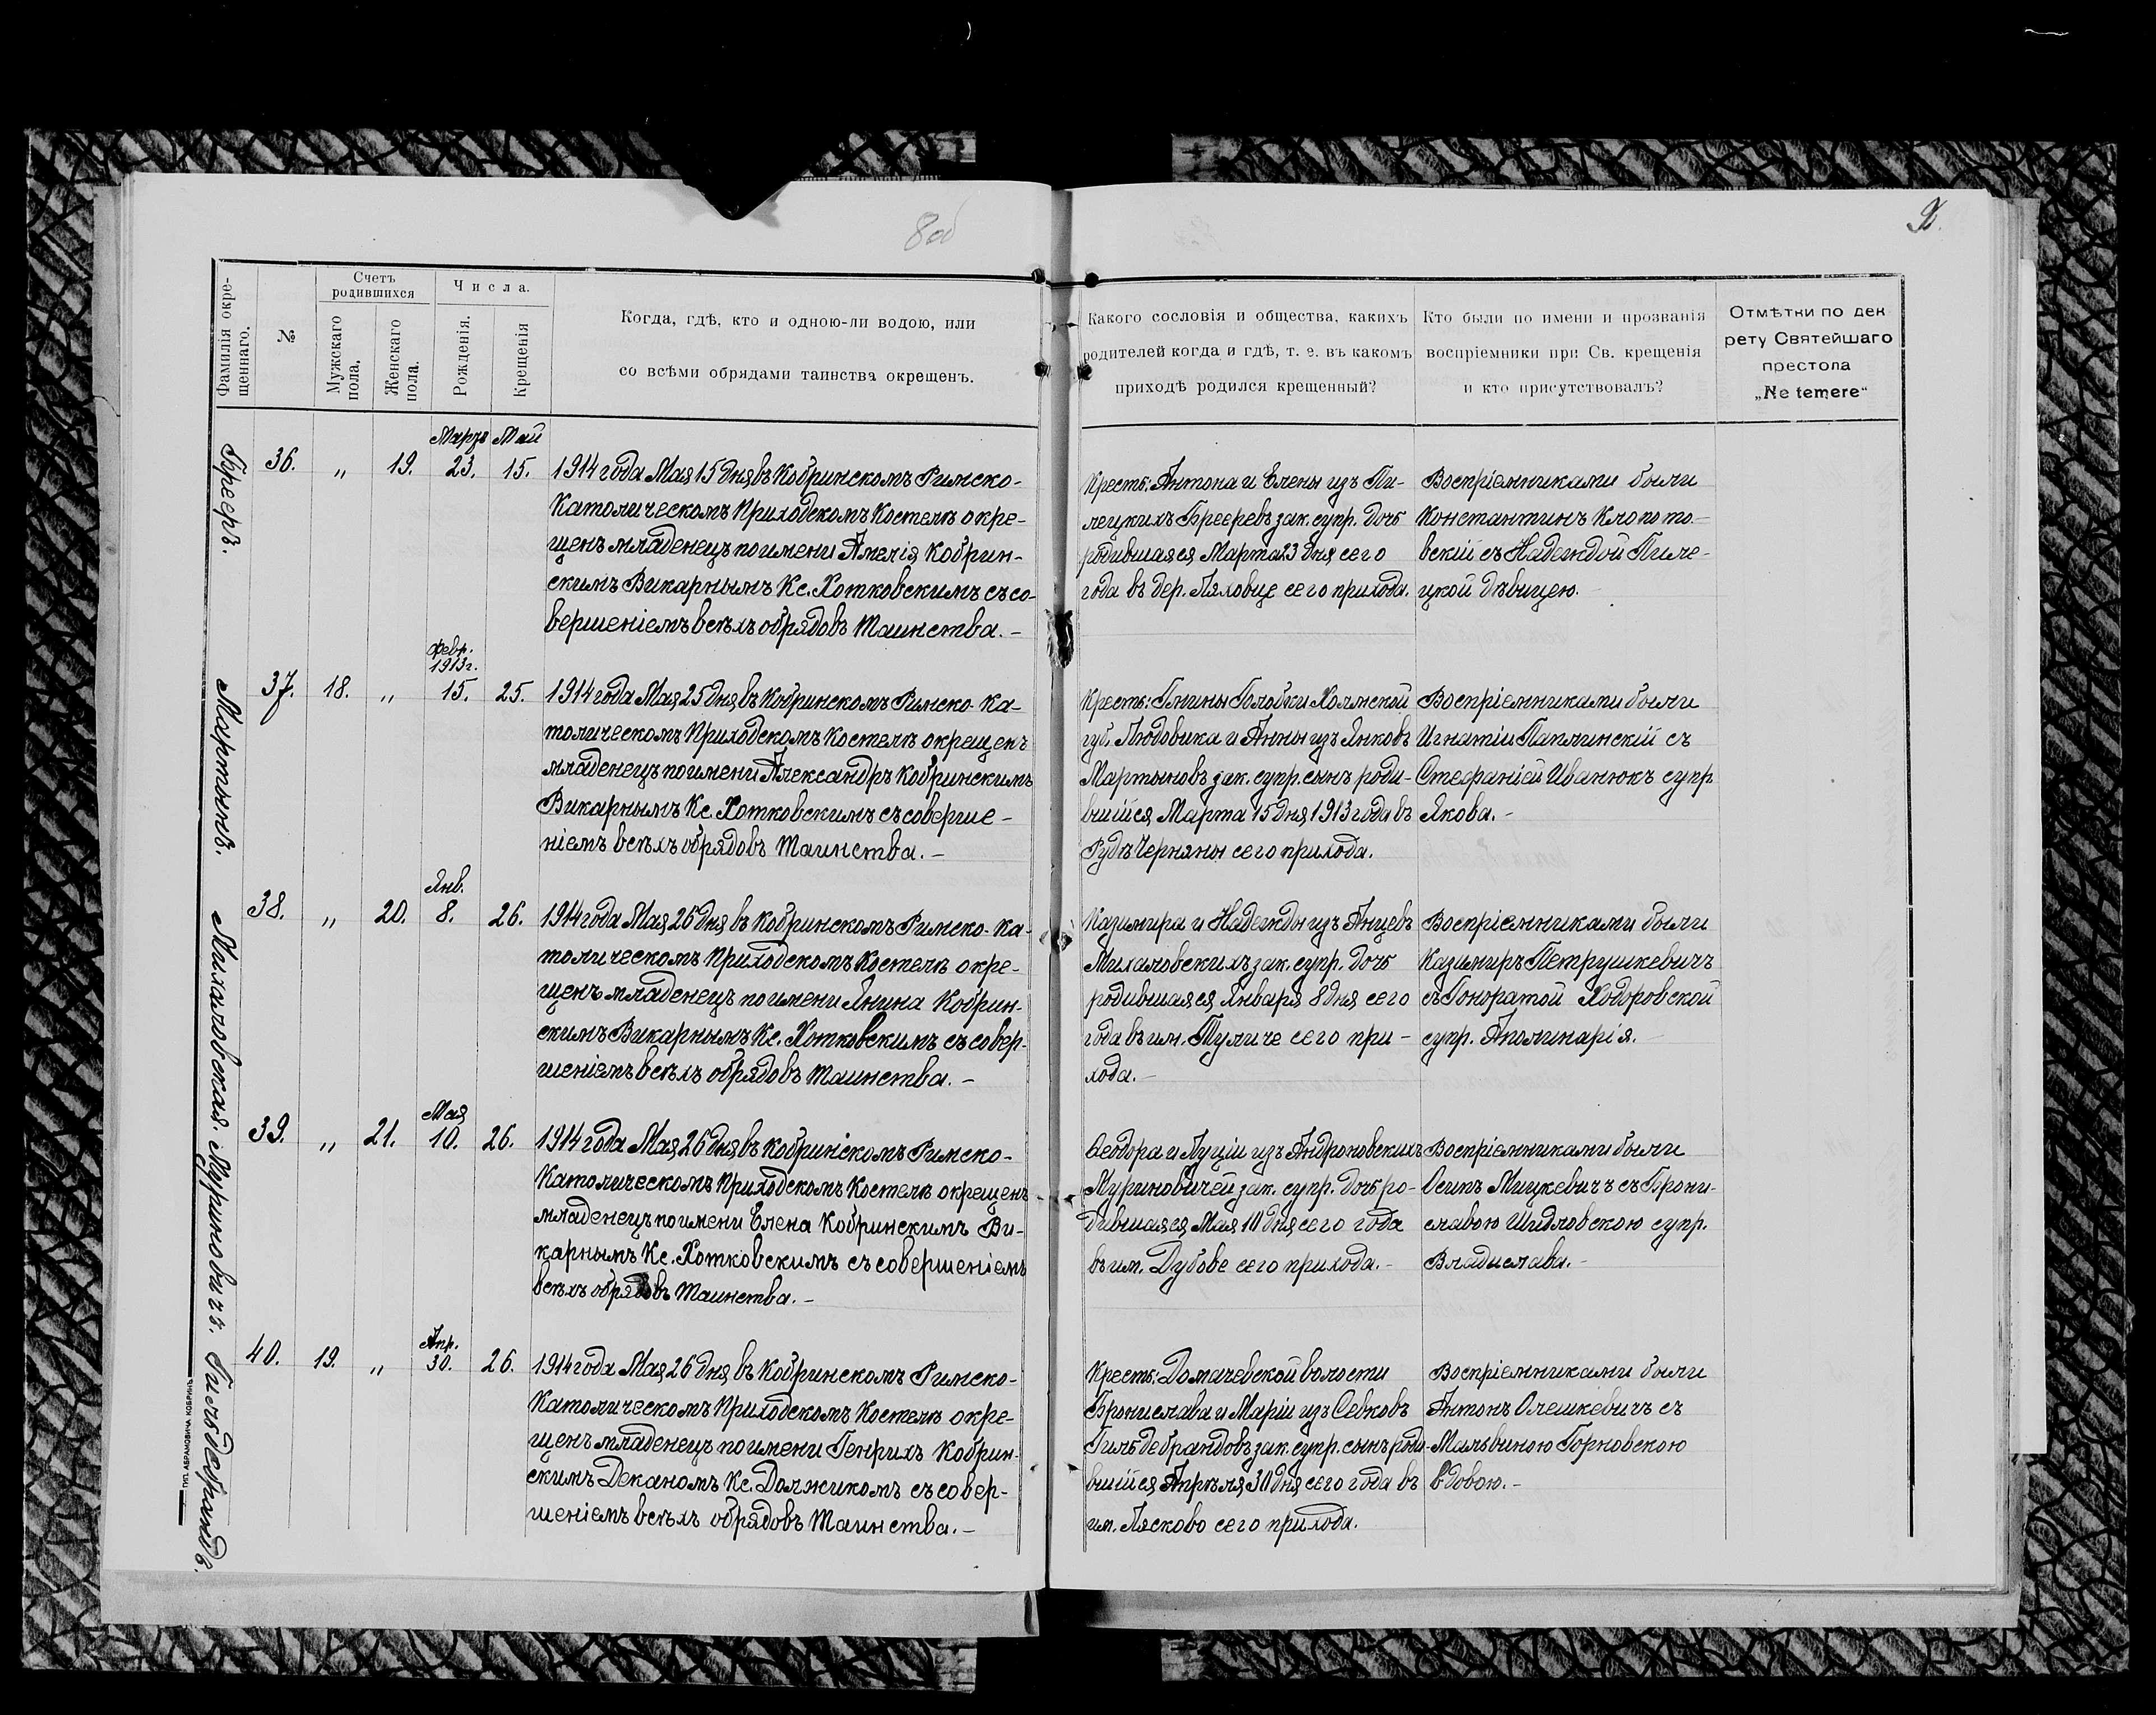 8 об
9.
Фамилія окре-
щеннаго.
№
Счетъ
родившихся
Мужскаго
пола.
Женскаго
пола.
Числа.
Рожденія.
Крещенія
Когда, гдѣ, кто и одною-ли водою, или
со всѣми обрядами таинства окрещенъ.
Какого сословія и общества, какихъ
родителей когда и гдѣ, т. е. въ какомъ
приходѣ родился крещенный?
Кто были по имени и прозванія
воспріемники при Св. крещенія
и кто присутствовалъ?
Отмѣтки по дек
рету Святейшаго
престола
„Ne temere“
Брееръ.
36.
„
19.
Мартъ
23.
Май
15.
1914 года Мая 15 дня въ Кобринскомъ Римско-
Католическомъ Приходскомъ Костелѣ окре-
щенъ младенецъ по имени Амелія Кобрин-
скимъ Викарнымъ Кс. Хотковскимъ съ со-
вершеніемъ всѣхъ обрядовъ Таинства. -
Крестъ: Антона и Елены изъ Пи-
лецкихъ Брееревъ зак. супр. дочь
родившаяся Марта 23 дня сего
года въ дер. Ляховце сего прихода.
Воспріемниками были
Константинъ Клопото-
вскій съ Надеждой Пиле-
цкой дѣвицею. -
Мартыновъ.
37.
18.
„
Февр.
1913 г.
15.
25.
1914 года Мая 25 дня въ Кобринскомъ Римско-Ка-
толическомъ Приходскомъ Костелѣ окрещенъ
младенецъ по имени Александръ Кобринскимъ
Викарнымъ Кс. Хотковскимъ съ соверше-
ніемъ всѣхъ обрядовъ Таинства. -
Крестъ: Гмины Голобки Холмской
губ. Людовика и Анны изъ Янковъ
Мартыновъ зак. супр. сынъ роди-
вшійся Марта 15 дня 1913 года въ
Рудѣ Черняны сего прихода.
Воспріемниками были
Игнатій Паплинскій съ
Стефаніей Иванюкъ супр
Якова. -
Михаловская.
38.
„
20.
Янв.
8.
26.
1914 года Мая 26 дня въ Кобринскомъ Римско-Ка-
толическомъ Приходскомъ Костелѣ окре-
щенъ младенецъ по имени Янина Кобрин-
скимъ Викарнымъ Кс. Хотковскимъ съ совер-
шеніемъ всѣхъ обрядовъ Таинства. -
Казимира и Надежды изъ Анцевъ
Михаловскихъ зак. супр. дочь
родившаяся Января 8 дня сего
года въ им. Туличе сего при-
хода. -
Воспріемниками были
Казимиръ Петрушкевичъ
съ Гоноратой Ходоровской
супр. Аполинарія. -
Муриновичъ.
39.
„
21.
Мая
10.
26.
1914 года Мая 26 дня въ Кобринскомъ Римско-
Католическомъ Приходскомъ Костелѣ окрещенъ
младенецъ по имени Елена Кобринскимъ Ви-
карнымъ Кс. Хотковскимъ съ совершеніемъ
всѣхъ обрядовъ Таинства. -
Ѳеодора и Луціи изъ Андроновскихъ
Муриновичей зак. супр. дочь ро-
дившаяся Мая 10 дня сего года
въ им. Дубове сего прихода. -
Воспріемниками были
Осипъ Мицкевичъ съ Брони-
славою Шидловскою супр.
Владислава. -
Гильдебрандъ.
40.
19.
„
Апр.
30.
26.
1914 года Мая 26 дня въ Кобринскомъ Римско-
Католическомъ Приходскомъ Костелѣ окре-
щенъ младенецъ по имени Генрихъ Кобрин-
скимъ Деканомъ Кс. Должикомъ съ совер-
шеніемъ всѣхъ обрядовъ Таинства. -
Крестъ: Домачевской волости
Бронислава и Маріи изъ Севковъ
Гильдебрандовъ зак. супр. сынъ роди-
вшійся Апрѣля 30 дня сего года въ
им. Лясково сего прихода.
Воспріемниками были
Антонъ Олешкевичъ съ
Мальвиною Горновскою
вдовою. -
ТИП. АБРАМОВИЧА КОБРИНЪ